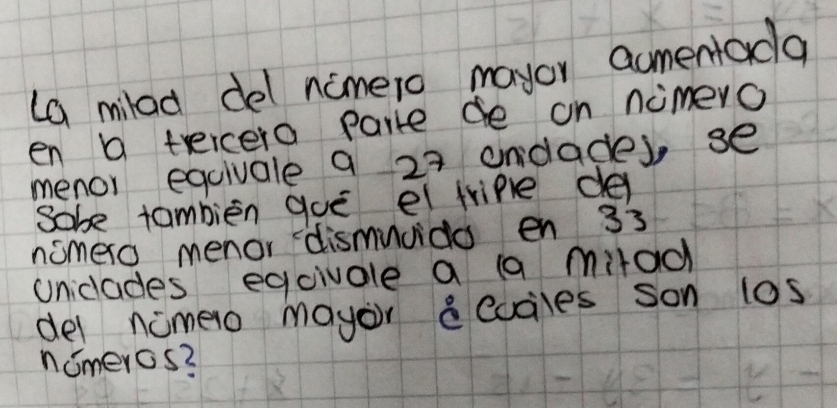 La mitad del número mayor aumentada
en la tercera parte de un número
menor equivale a 27 unidades, se
sabe también qué el triple del
número menor disminuido en 33
unidades equivale a la mitad
del número mayor ¿cuáles son los
números?